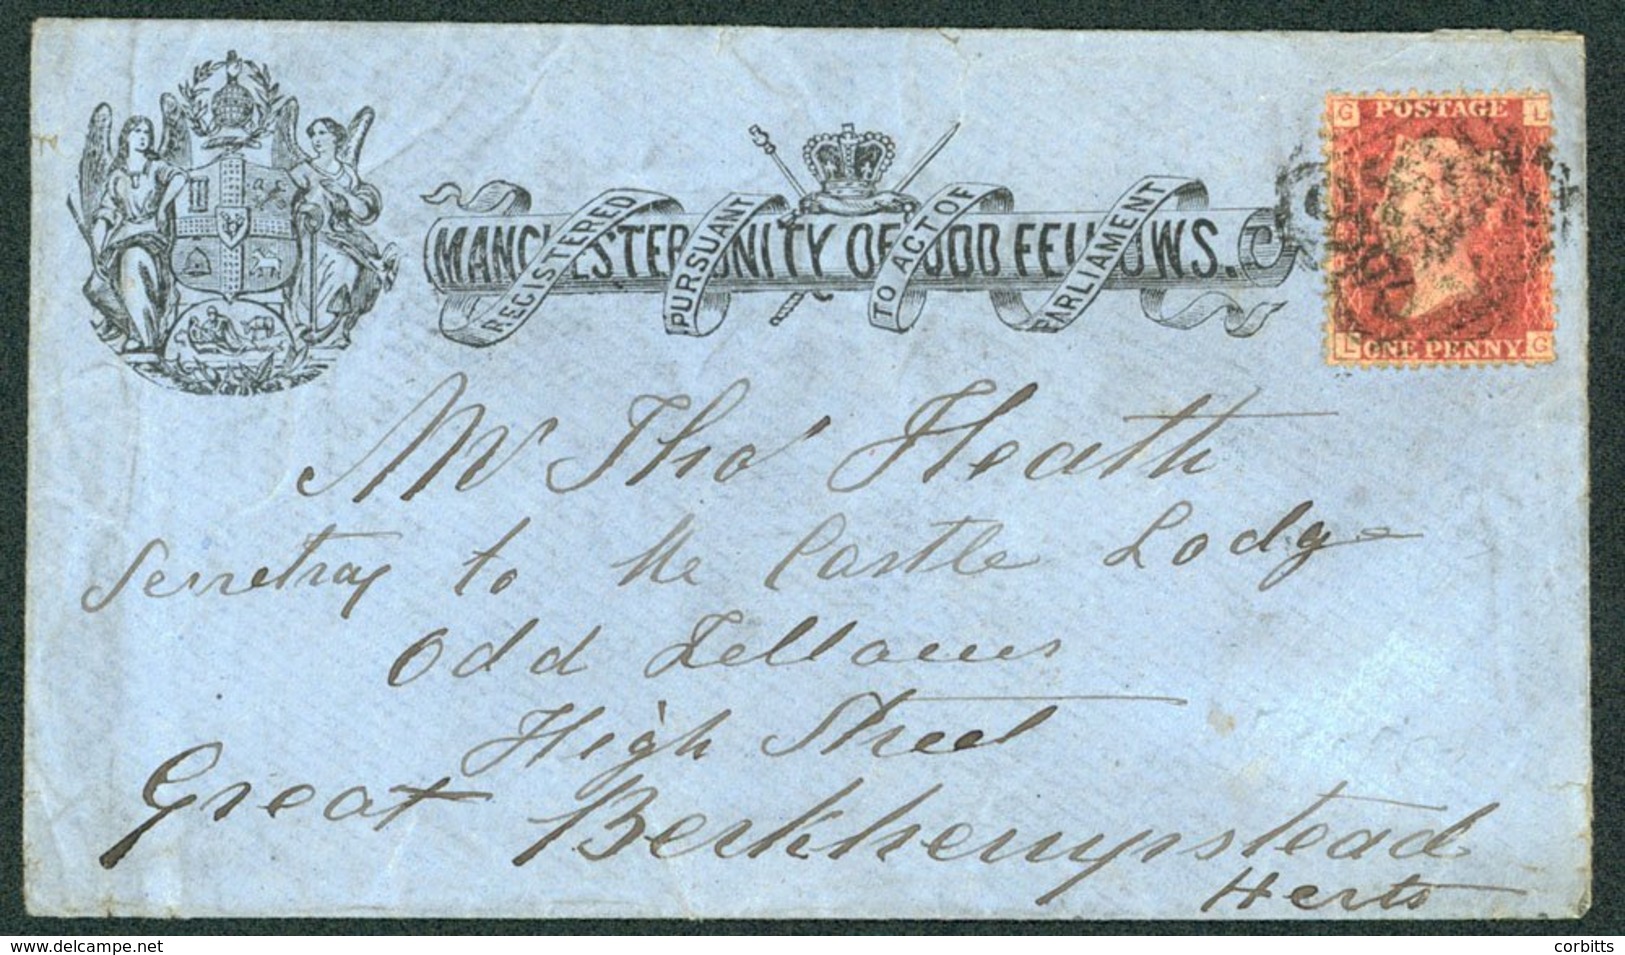 MANCHESTER UNITY OF ODD FELLOWS.
REGISTERED PURSUANT TO ACT OF PARLIAMENT
G POSTAGE L
L ONE PENNY G
Mr Thos Heath
Secretray to the Castle Lodge
Odd Fellows
High Street
Great Berkhempstead
Herts
www.delcampe.net
corbitts